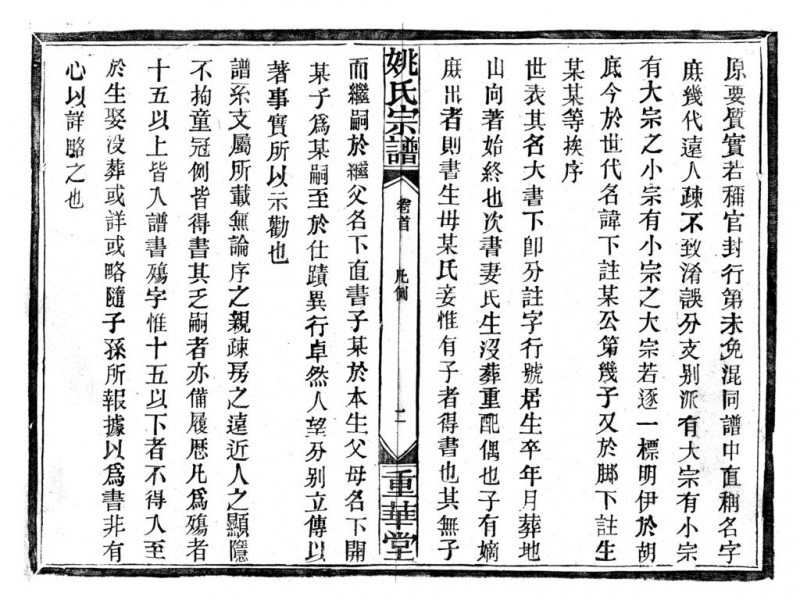 原要質實若稱官封行第未免混同譜中直稱名字
庶幾代遠人疎不致淆誤分支别派有大宗有小宗
有大宗之小宗有小宗之大宗若逐一標明伊於胡
底今於世代名諱下註某公第幾子又於脚下註生
某某等挨序
世表其名大書下卽分註字行號居生卒年月葬地
山向著始終也次書妻氏生沒葬重配偶也子有嫡
庶出者則書生毋某氏妾惟有子者得書也其無子
姚氏宗譜
卷首
凡例
二
重華堂
而繼嗣於繼父名下直書子某於本生父毋名下開
某子爲某嗣至於仕蹟異行卓然人望分别立傳以
著事實所以示勸也
譜系支屬所載無論序之親疎房之遠近人之顯隱
不拘童冠例皆得書其乏嗣者亦備履歷凡爲殤者
十五以上皆入譜書殤字惟十五以下者不得入至
於生娶没葬或詳或略隨子孫所報據以爲書非有
心以詳略之也